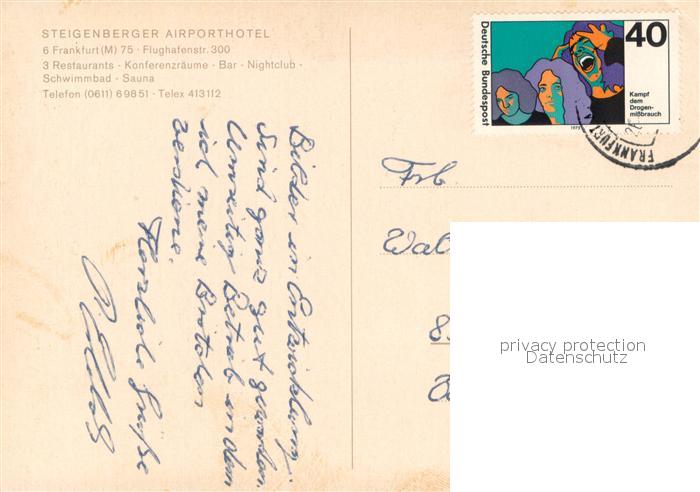 STEIGENBERGER AIRPORTHOTEL
6 Frankfurt (M) 75 · Flughafenstr. 300
3 Restaurants · Konferenzräume · Bar · Nightclub ·
Schwimmbad · Sauna
Telefon (0611) 69851 · Telex 413112
Deutsche Bundespost
40
Kampf
dem
Drogen-
mißbrauch
1975
FRANKFURT
Bilder in Entwicklung.
Sind ganz gut geworden.
Betrieb in dem
ich meine Brötchen
verdiene.
Herzliche Grüße
Frl.
Wal
8
privacy protection
Datenschutz